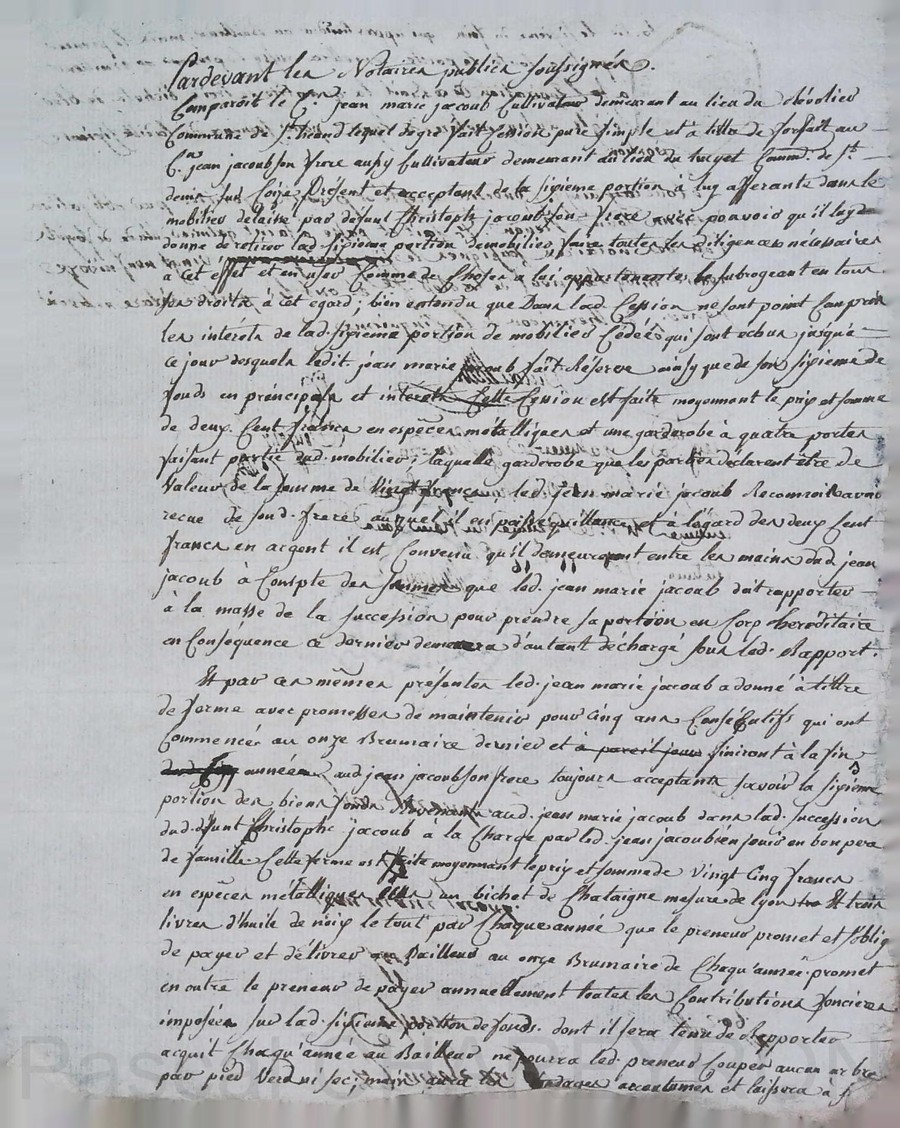 Pardevant les Notaires publics soussignés.
Comparoit le C.en jean marie jacoub Cultivateur demeurant au lieu du
Commune de St. lequel degré fait Cession pure simple et a titre de forfait au
C.en jean jacoub son frere aussy Cultivateur demeurant au lieu du Comm.e de St.
denis sur Coize présent et acceptant de la sixieme portion à luy afferante dans le
mobilier délaissé par defunt Christophe jacoub son frere avec pouvoir qu'il luy
donne de retirer lad. sixieme portion de mobilier, faire toutes les diligences nécessaires
à cet effet et en user Comme de Choses a lui appartenantes le subrogeant en tous
ses droits à cet egard; bien entendu que Dans lad. Cession ne sont point Compris
les intérets de lad. sixieme portion de mobilier Cédée qui sont echus jusqu'a
ce jour desquels ledit. jean marie jacoub fait Réserve ainsy que de son sixieme de
fonds en principals et intérets Cette Cession est faite moyennant le prix et somme
de deux Cent francs en espèces métalliques et une garderobe à quatre portes
faisant partie dud. mobilier; laquelle garderobe que les parties déclarent être de
Valeur de la somme de Vingt francs led. jean marie jacoub Reconnoit avoir
recue de sond. frere auquel il en passe quittance, et à légard des deux Cent
francs en argent il est Convenu qu'il demeureront entre les mains dud. jean
jacoub à Compte des sommes que led. jean marie jacoub doit rapporter
à la masse de la succession pour prendre sa portion en Corp héréditaire
en Conséquence ce dernier demeura d'autant déchargé sous led. Rapport.
Et par ces mêmes présentes led. jean marie jacoub a donné à tittre
de ferme avec promesses de maintenir pour Cinq ans Consécutifs qui ont
Commencés au onze Brumaire dernier et à pareil jour finiront à la fin
années aud jean jacoub son frere toujours acceptant savoir la sixieme
portion des biens fonds Revenants aud. jean marie jacoub dans lad. succession
dud. défunt Christophe jacoub à la Charge par led. jean jacoub d'en jouir en bon pere
de famille Cette ferme est faite moyennant le prix et somme de Vingt Cinq francs
en espèces métalliques un bichet de Chataigne mesure de lyon Et trois
livres d'huile de noix le tout par Chaque année que le preneur promet et s'oblig
de payer et délivrer au Bailleur au onze Brumaire de Chaqu'année promet
en outre le preneur de payer annuellement toutes les Contributions foncières
imposées sur lad. sixieme portion de fonds. dont il sera tenu de Rapporter
acquit Chaqu'année au Bailleur ne pourra led. preneur Couper aucun arbre
par pied Verd ni sec; mais aura accoutumés et laissera à